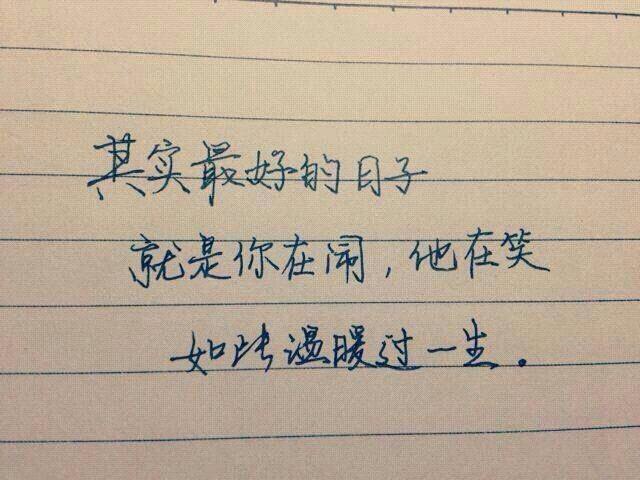 其实最好的日子
就是你在闹,他在笑
如此温暖过一生.